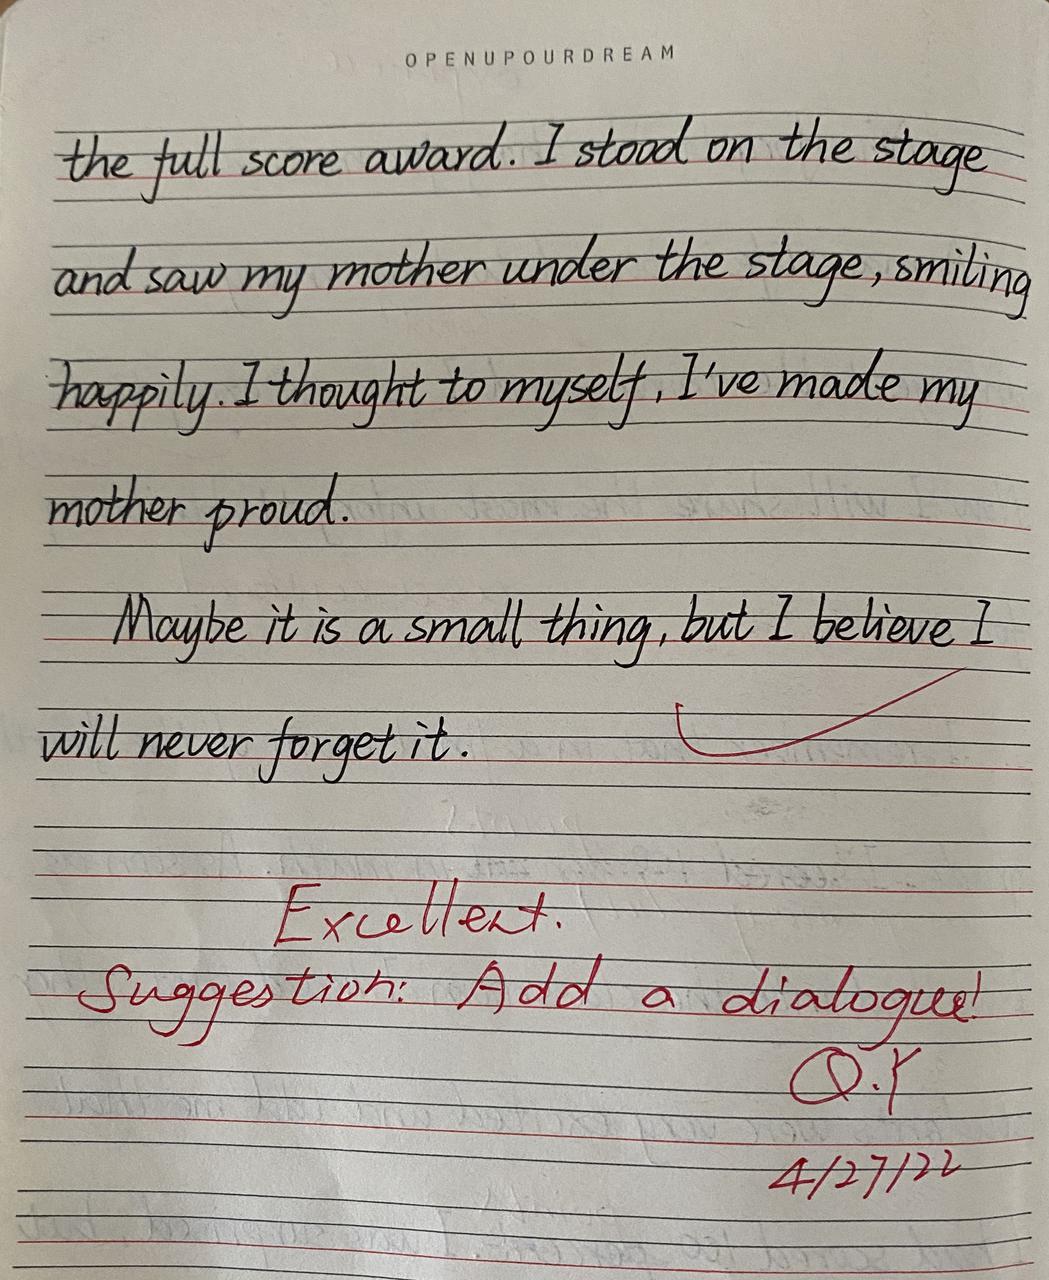 OPENUPOURDREAM
the full score award. I stood on the stage
and saw my mother under the stage, smiling
happily. I thought to myself, I've made my
mother proud.
Maybe it is a small thing, but I believe I
will never forget it.
Excellent.
Suggestion: Add a dialogue!
Q.Y
4/27/22